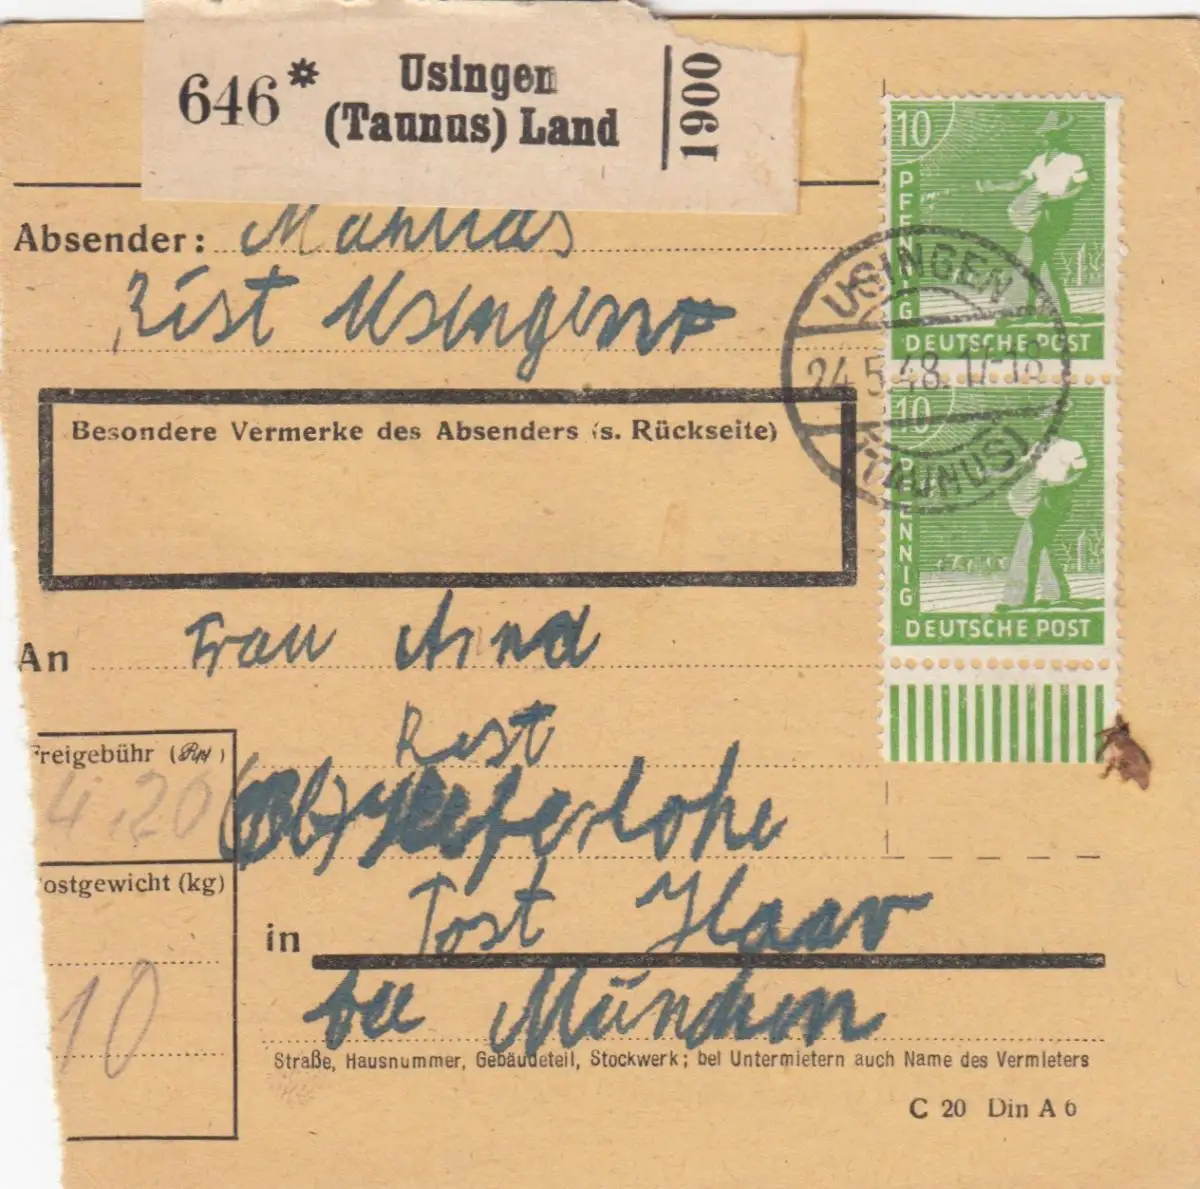 646* Usingen
(Taunus) Land
1900
10
PFENNIG
DEUTSCHE POST
10
PFENNIG
DEUTSCHE POST
USINGEN
24.5.48.17-18
(TAUNUS)
Absender: Mathias
Rist Usingen
Besondere Vermerke des Absenders (s. Rückseite)
An Frau Anna
Rist
Freigebühr (RM)
4,20
(Ob)
Postgewicht (kg)
10
in Post Haar
bei München
Straße, Hausnummer, Gebäudeteil, Stockwerk; bei Untermietern auch Name des Vermieters
C 20 Din A 6